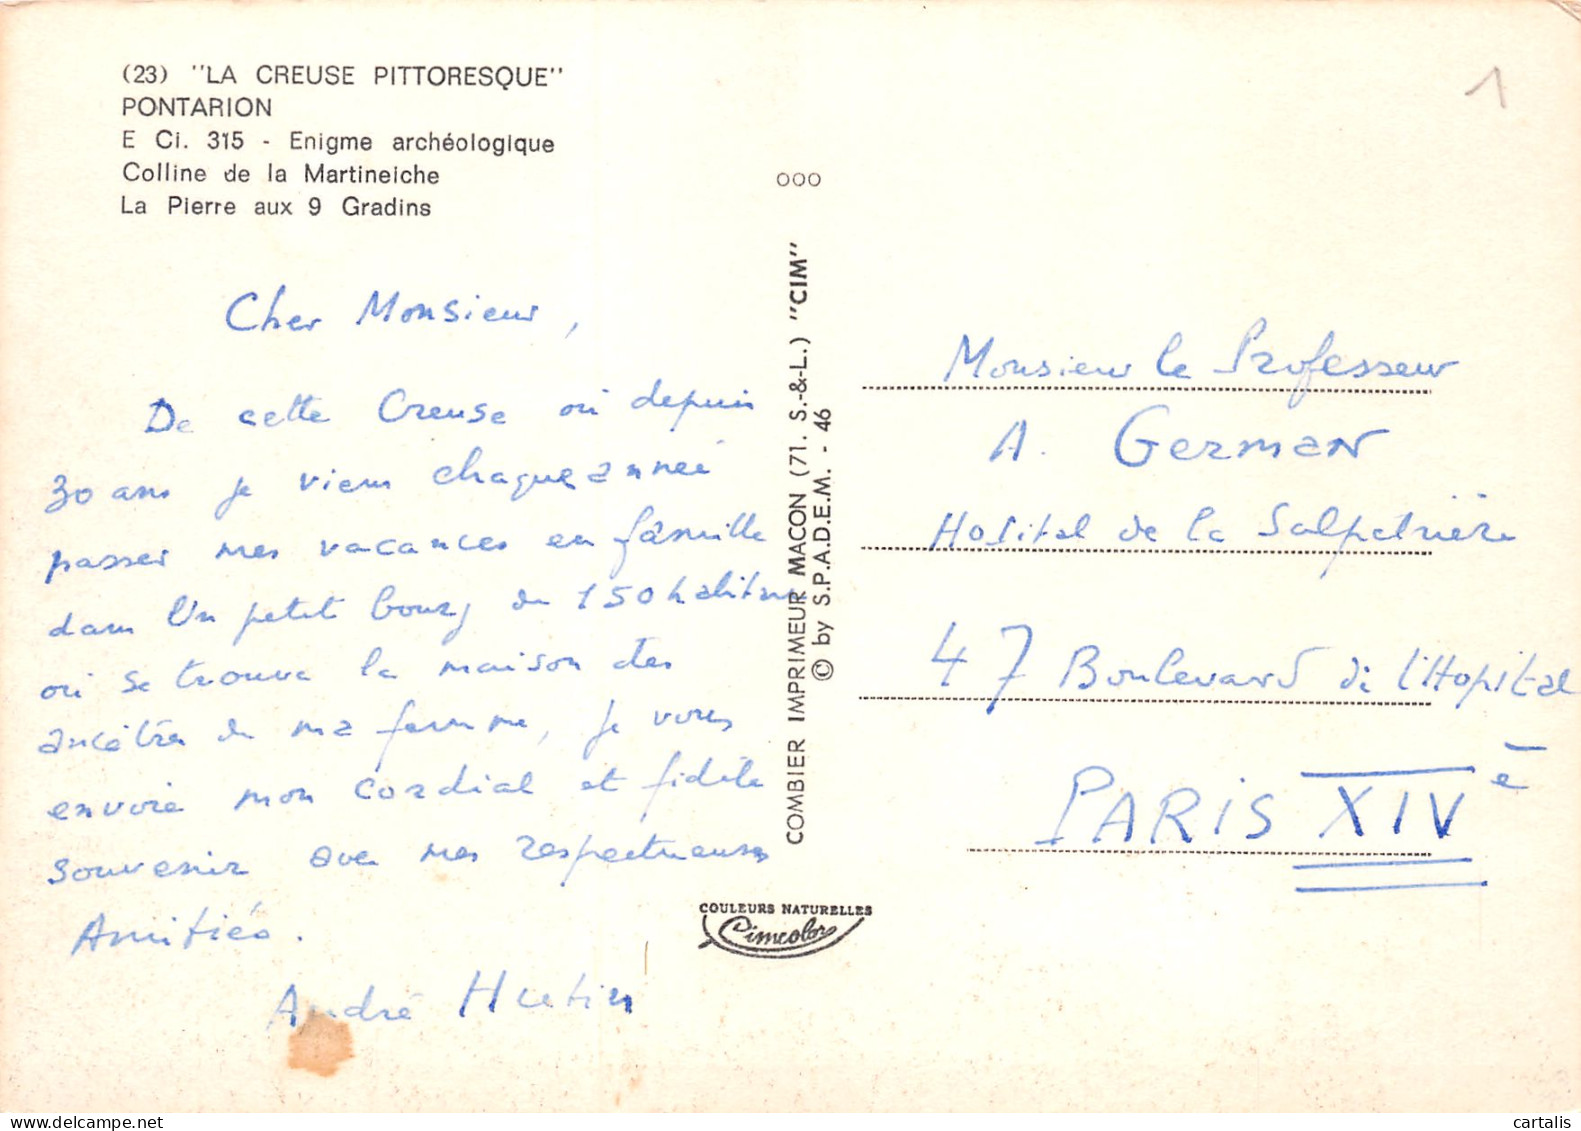 (23) "LA CREUSE PITTORESQUE"
PONTARION
E Ci. 315 - Enigme archéologique
Colline de la Martineiche
La Pierre aux 9 Gradins
Cher Monsieur,
De cette Creuse où depuis
30 ans je viens chaque année
passer mes vacances en famille
dans Un petit bourg de 150 habitants
où se trouve la maison des
ancêtres de ma femme, je vous
envoie mon cordial et fidèle
souvenir avec mes respectueuses
Amitiés.
André Hutin
COMBIER IMPRIMEUR MACON (71. S.-&-L.) "CIM"
© by S.P.A.D.E.M. - 46
COULEURS NATURELLES
Cimcolor
1
000
Monsieur le Professeur
A. German
Hôpital de la Salpetrière
47 Boulevard de l'Hopital
PARIS XIVe
cartalis